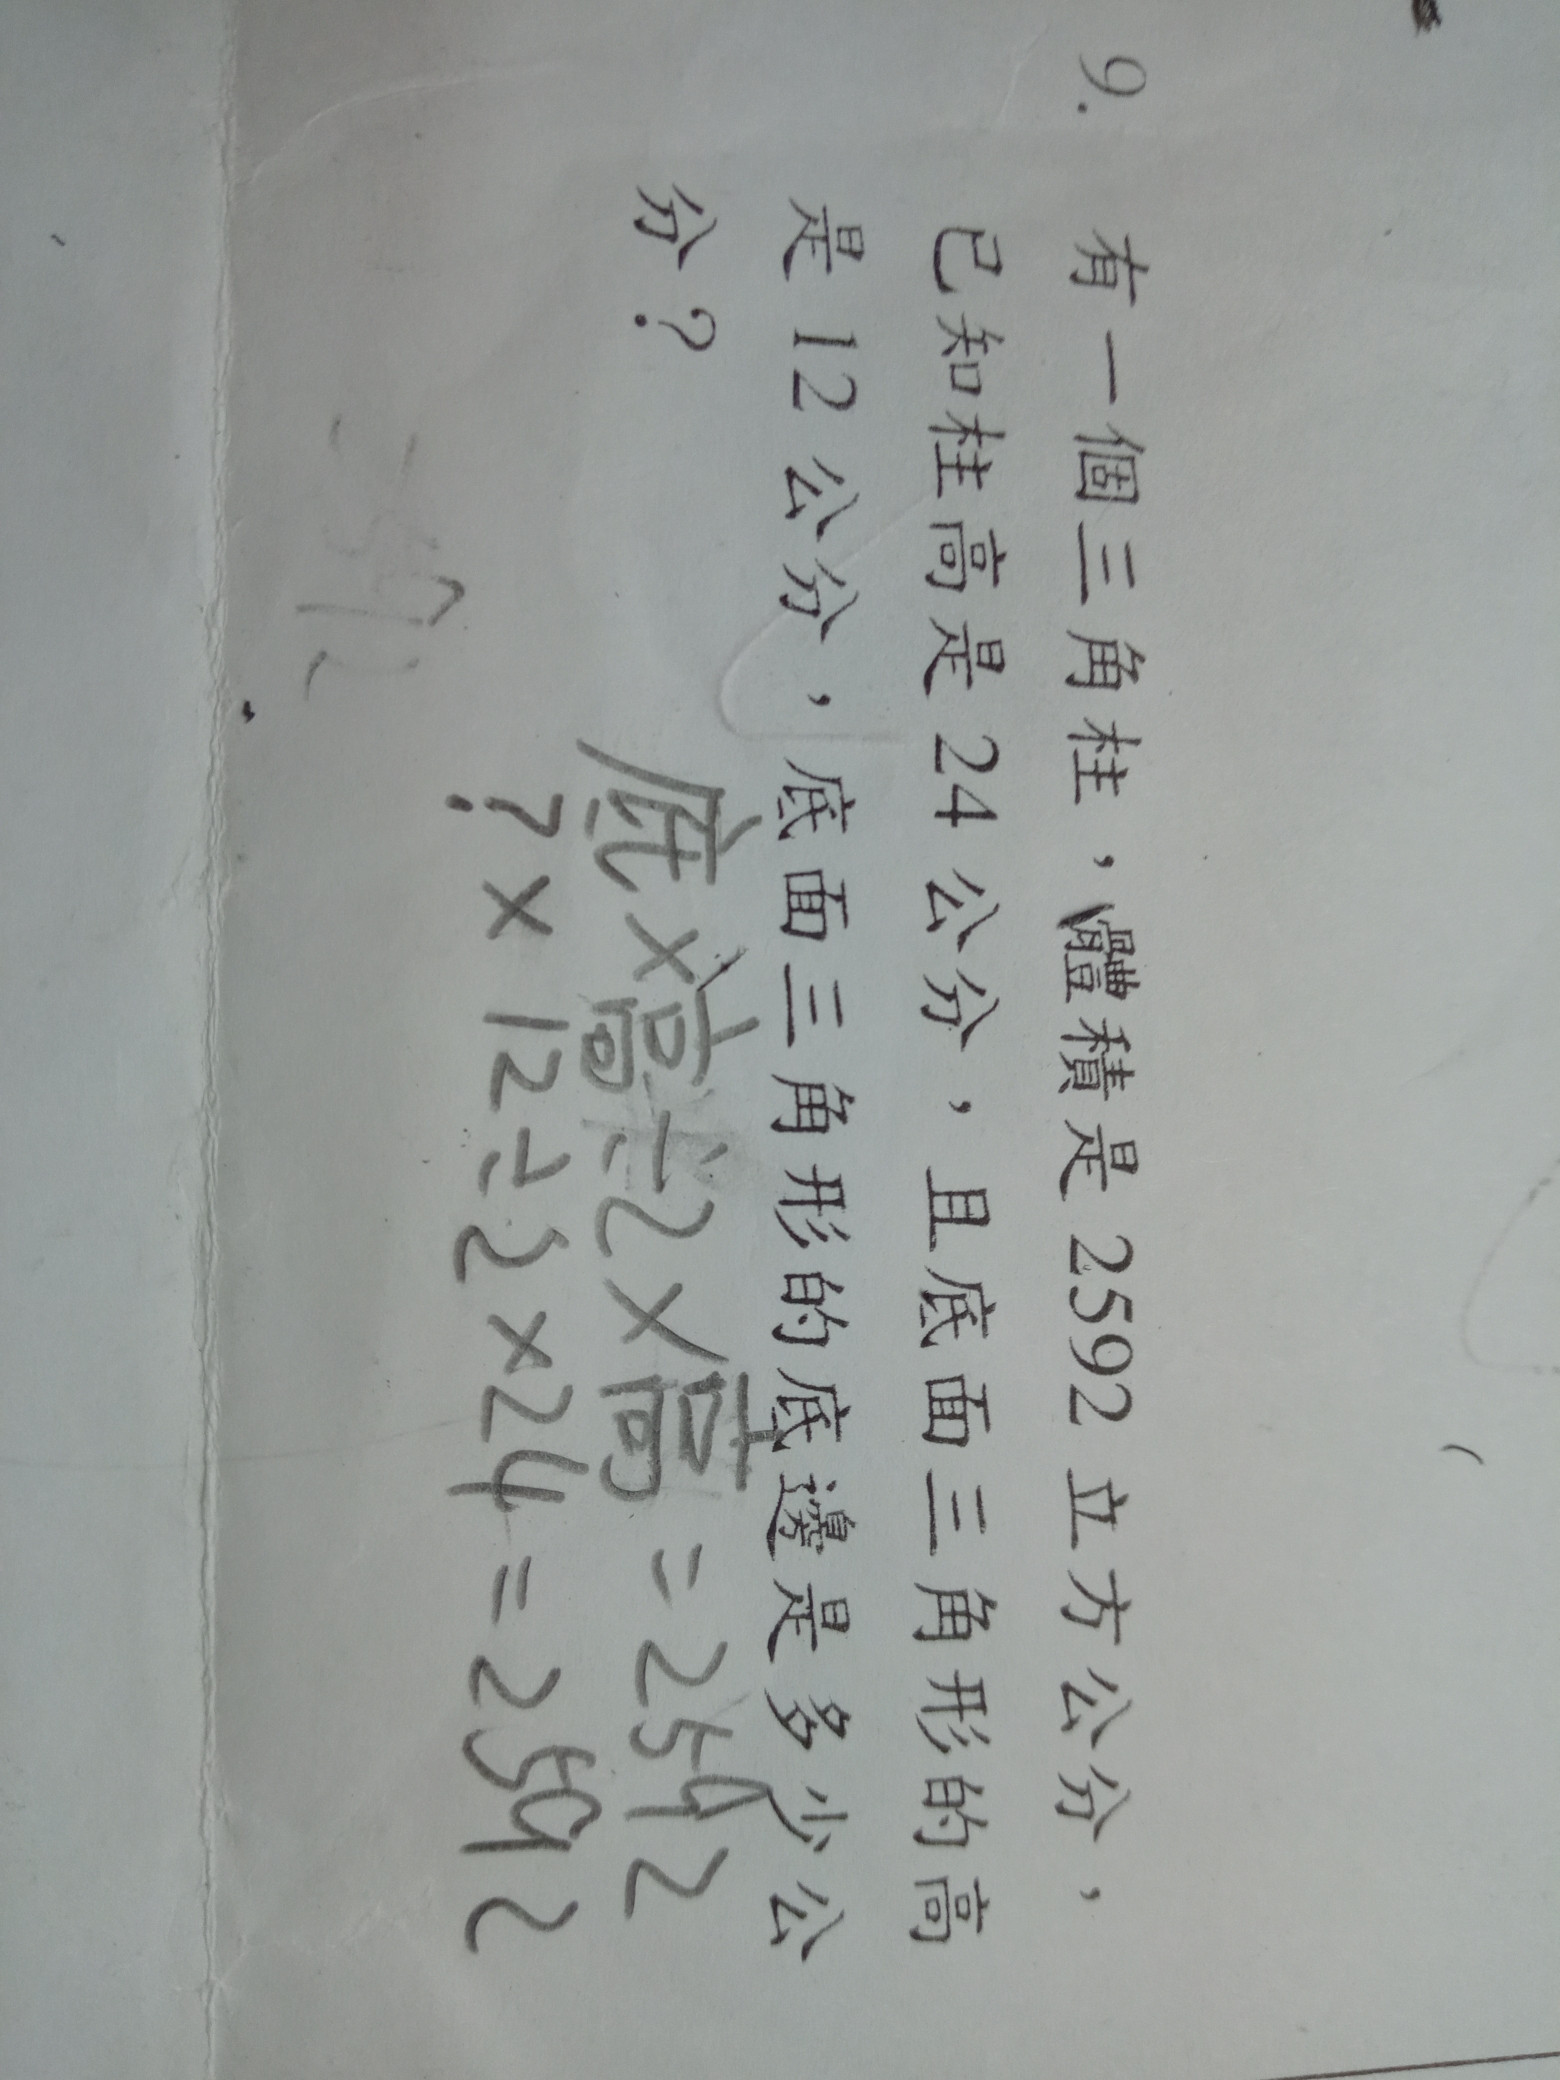 9. 有一個三角柱，體積是2592立方公分，
已知柱高是24公分，且底面三角形的高
是12公分，底面三角形的底邊是多少公
分？
底×高÷2×高=2592
?×12÷2×24=2592